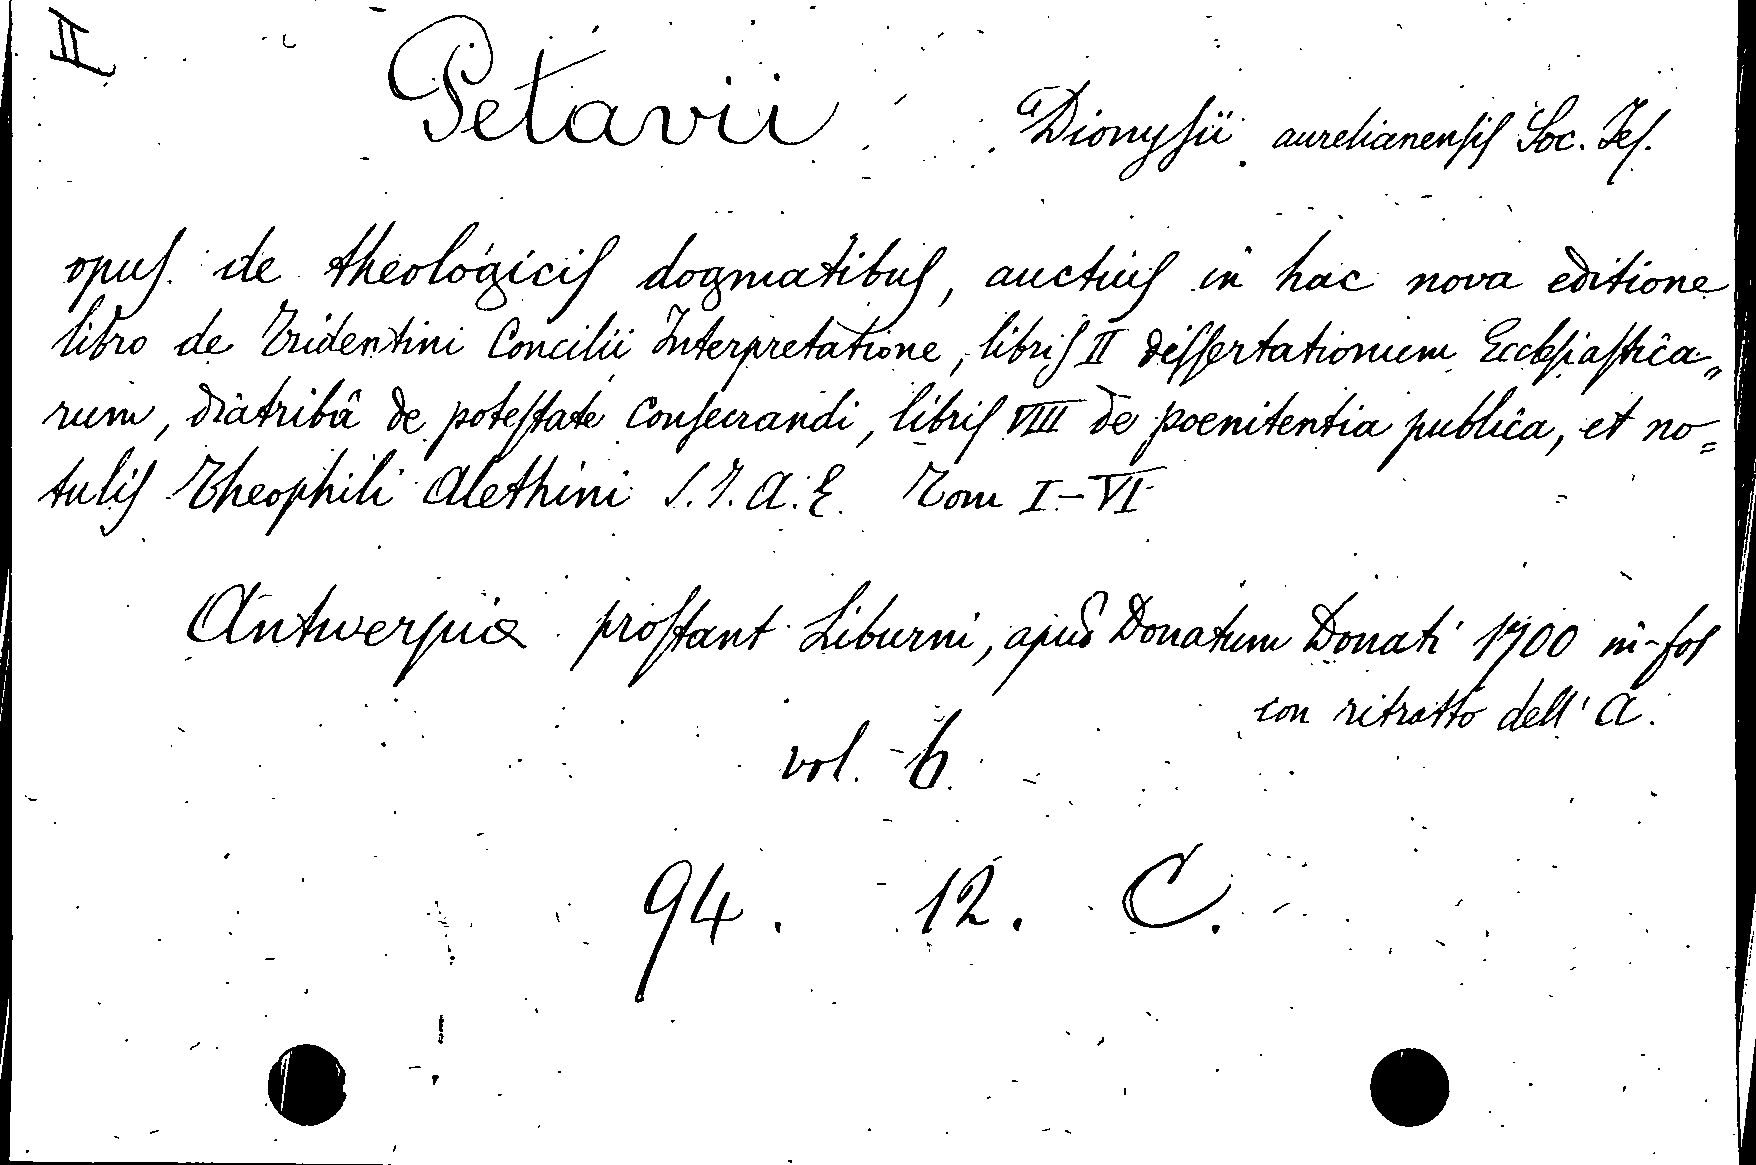 II
Petavii Dionysii aurelianensis Soc. Jes.
opus de theologicis dogmatibus, auctius in hac nova editione
libro de Tridentini Concilii Interpretatione, libris II dissertationum Ecclesiastica„
rum, diatribâ de potestate consecrandi, libris VIII de poenitentia publica, et no=
tulis Theophili Alethini S.J. A.E. Tom I-VI
Antwerpiae prostant Liburni, apud Donatum Donati 1700 in-fol
con ritratto dell'A.
vol. 6.
94. 12. C.